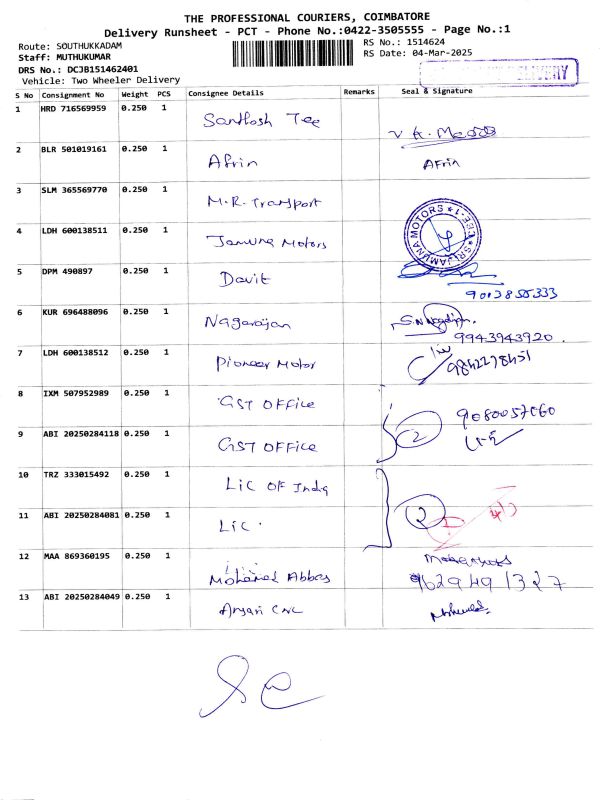 THE PROFESSIONAL COURIERS, COIMBATORE
Delivery Runsheet - PCT - Phone No.:0422-3505555 - Page No.:1
Route: SOUTHUKKADAM
RS No.: 1514624
Staff: MUTHUKUMAR
RS Date: 04-Mar-2025
DRS No.: DCJB151462401
Vehicle: Two Wheeler Delivery
DELIVERY
S No Consignment No Weight PCS Consignee Details Remarks Seal & Signature
1 HRD 716569959 0.250 1 Santhosh Tee
2 BLR 501019161 0.250 1 Afrin AFrin
3 SLM 365569770 0.250 1 M.R. Transport
4 LDH 600138511 0.250 1 Jamuna Motors SRI JAMUNA MOTORS
5 DPM 490897 0.250 1 David
6 KUR 696488096 0.250 1 Nagarajan 9943943920
7 LDH 600138512 0.250 1 Pioneer Motor 9842278451
8 IXM 507952989 0.250 1 GST OFFICE 9080057060
9 ABI 20250284118 0.250 1 GST OFFICE 2
10 TRZ 333015492 0.250 1 LIC OF India
11 ABI 20250284081 0.250 1 LIC 2
12 MAA 869360195 0.250 1 Mohamed Abbas 9629491327
13 ABI 20250284049 0.250 1 Ansari CNC